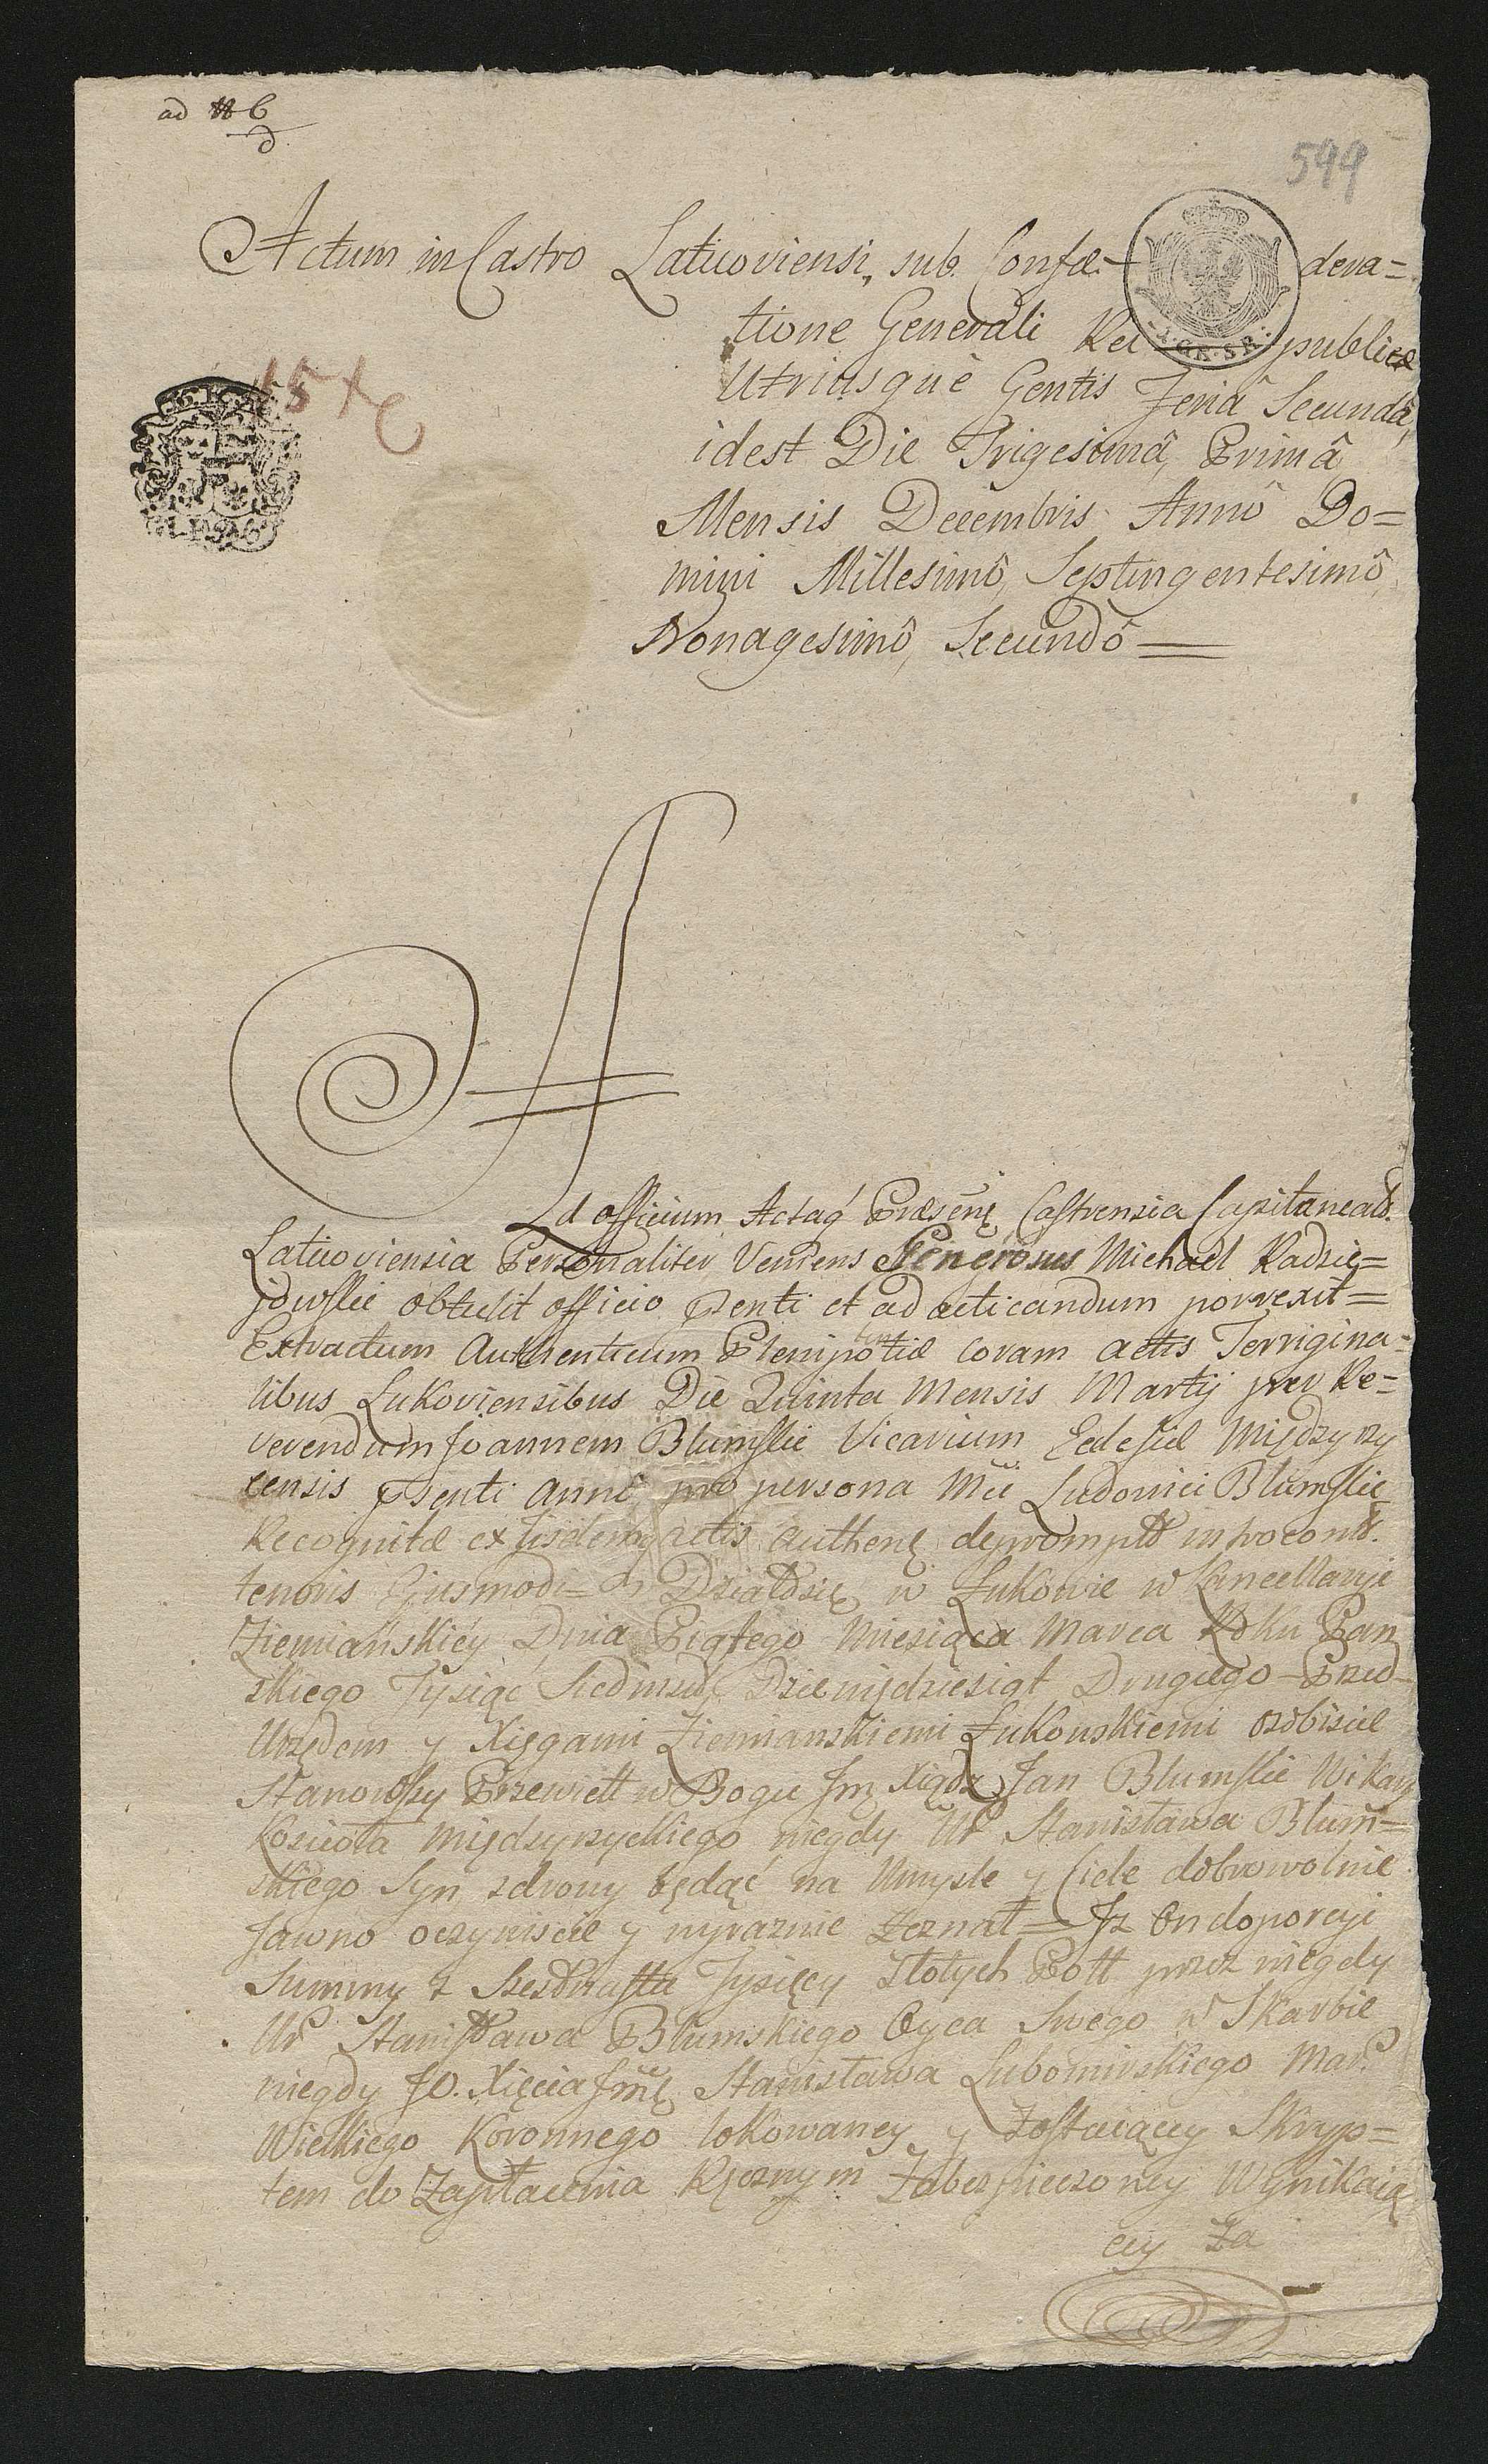 ad # 6
d
599
Actum in Castro Laticoviensi, sub. Confæ- dera=
tione Generali Rei publicæ
Utriusquè Gentis Feriâ Secundâ,
idest Die Trigesimâ, Primâ
Mensis Decembris Annô Do=
mini Millesimô, Septingentesimô,
Nonagesimô, Secundô
Ad officium Actaq́ Præsenę Castrensia Capitaneatt.
Laticoviensia Personaliter Veniens Generosus Michael Radzie=
jowskie obtulit officio psenti et ad acticandum porrexit=
Extractum Authenticum Plenipotentiæ coram actis Terrigina=
libus Lukoviensibus Die Quinta Mensis Martij per Re=
verendum Joannem Blumskie Vicarium Ecclesiæ Międzyrzy
censis psenti Anno pro persona Mci Ludovici Blumskie
Recognitæ ex iisdemq actis authenę deprompt
tenoris Ejusmodi= Działosię w Łukowie w Kancellaryi
Ziemiańskiéy Dnia Piątego Miesiąca Marca Roku Pan
skiego Tysiąc Siedmset Dziewiędziesiąt Drugiego Przed
Urzędem y Xięgami Ziemianskiemi Łukowskiemi osobiscie
Stanowszy Przewiell w Bogu Jmę Xiądz Jan Blumskie Wikary
Koscioła Międzyrzyckiego niegdy Ur Stanisława Blum=
skiego Syn, zdrowy będąc na Umysle y Ciele dobrowolnie
Jawno oczywiscie y wyraznie Zeznał= Jz On do porcyi
Summy z Szesdnastu Tysięcy Złotych Poll przez niegdy
Ur Stanisława Blumskiego Oyca Swego w Skarbie
niegdy JO. Xięcia Jmci Stanisława Lubomirskiego Mar.
Wielkiego Koronnego lokowaney y Zostaiącey Skryp=
tem do Zapłacenia Ręcznym Zabezpieczoney Wynikaią
cey Za